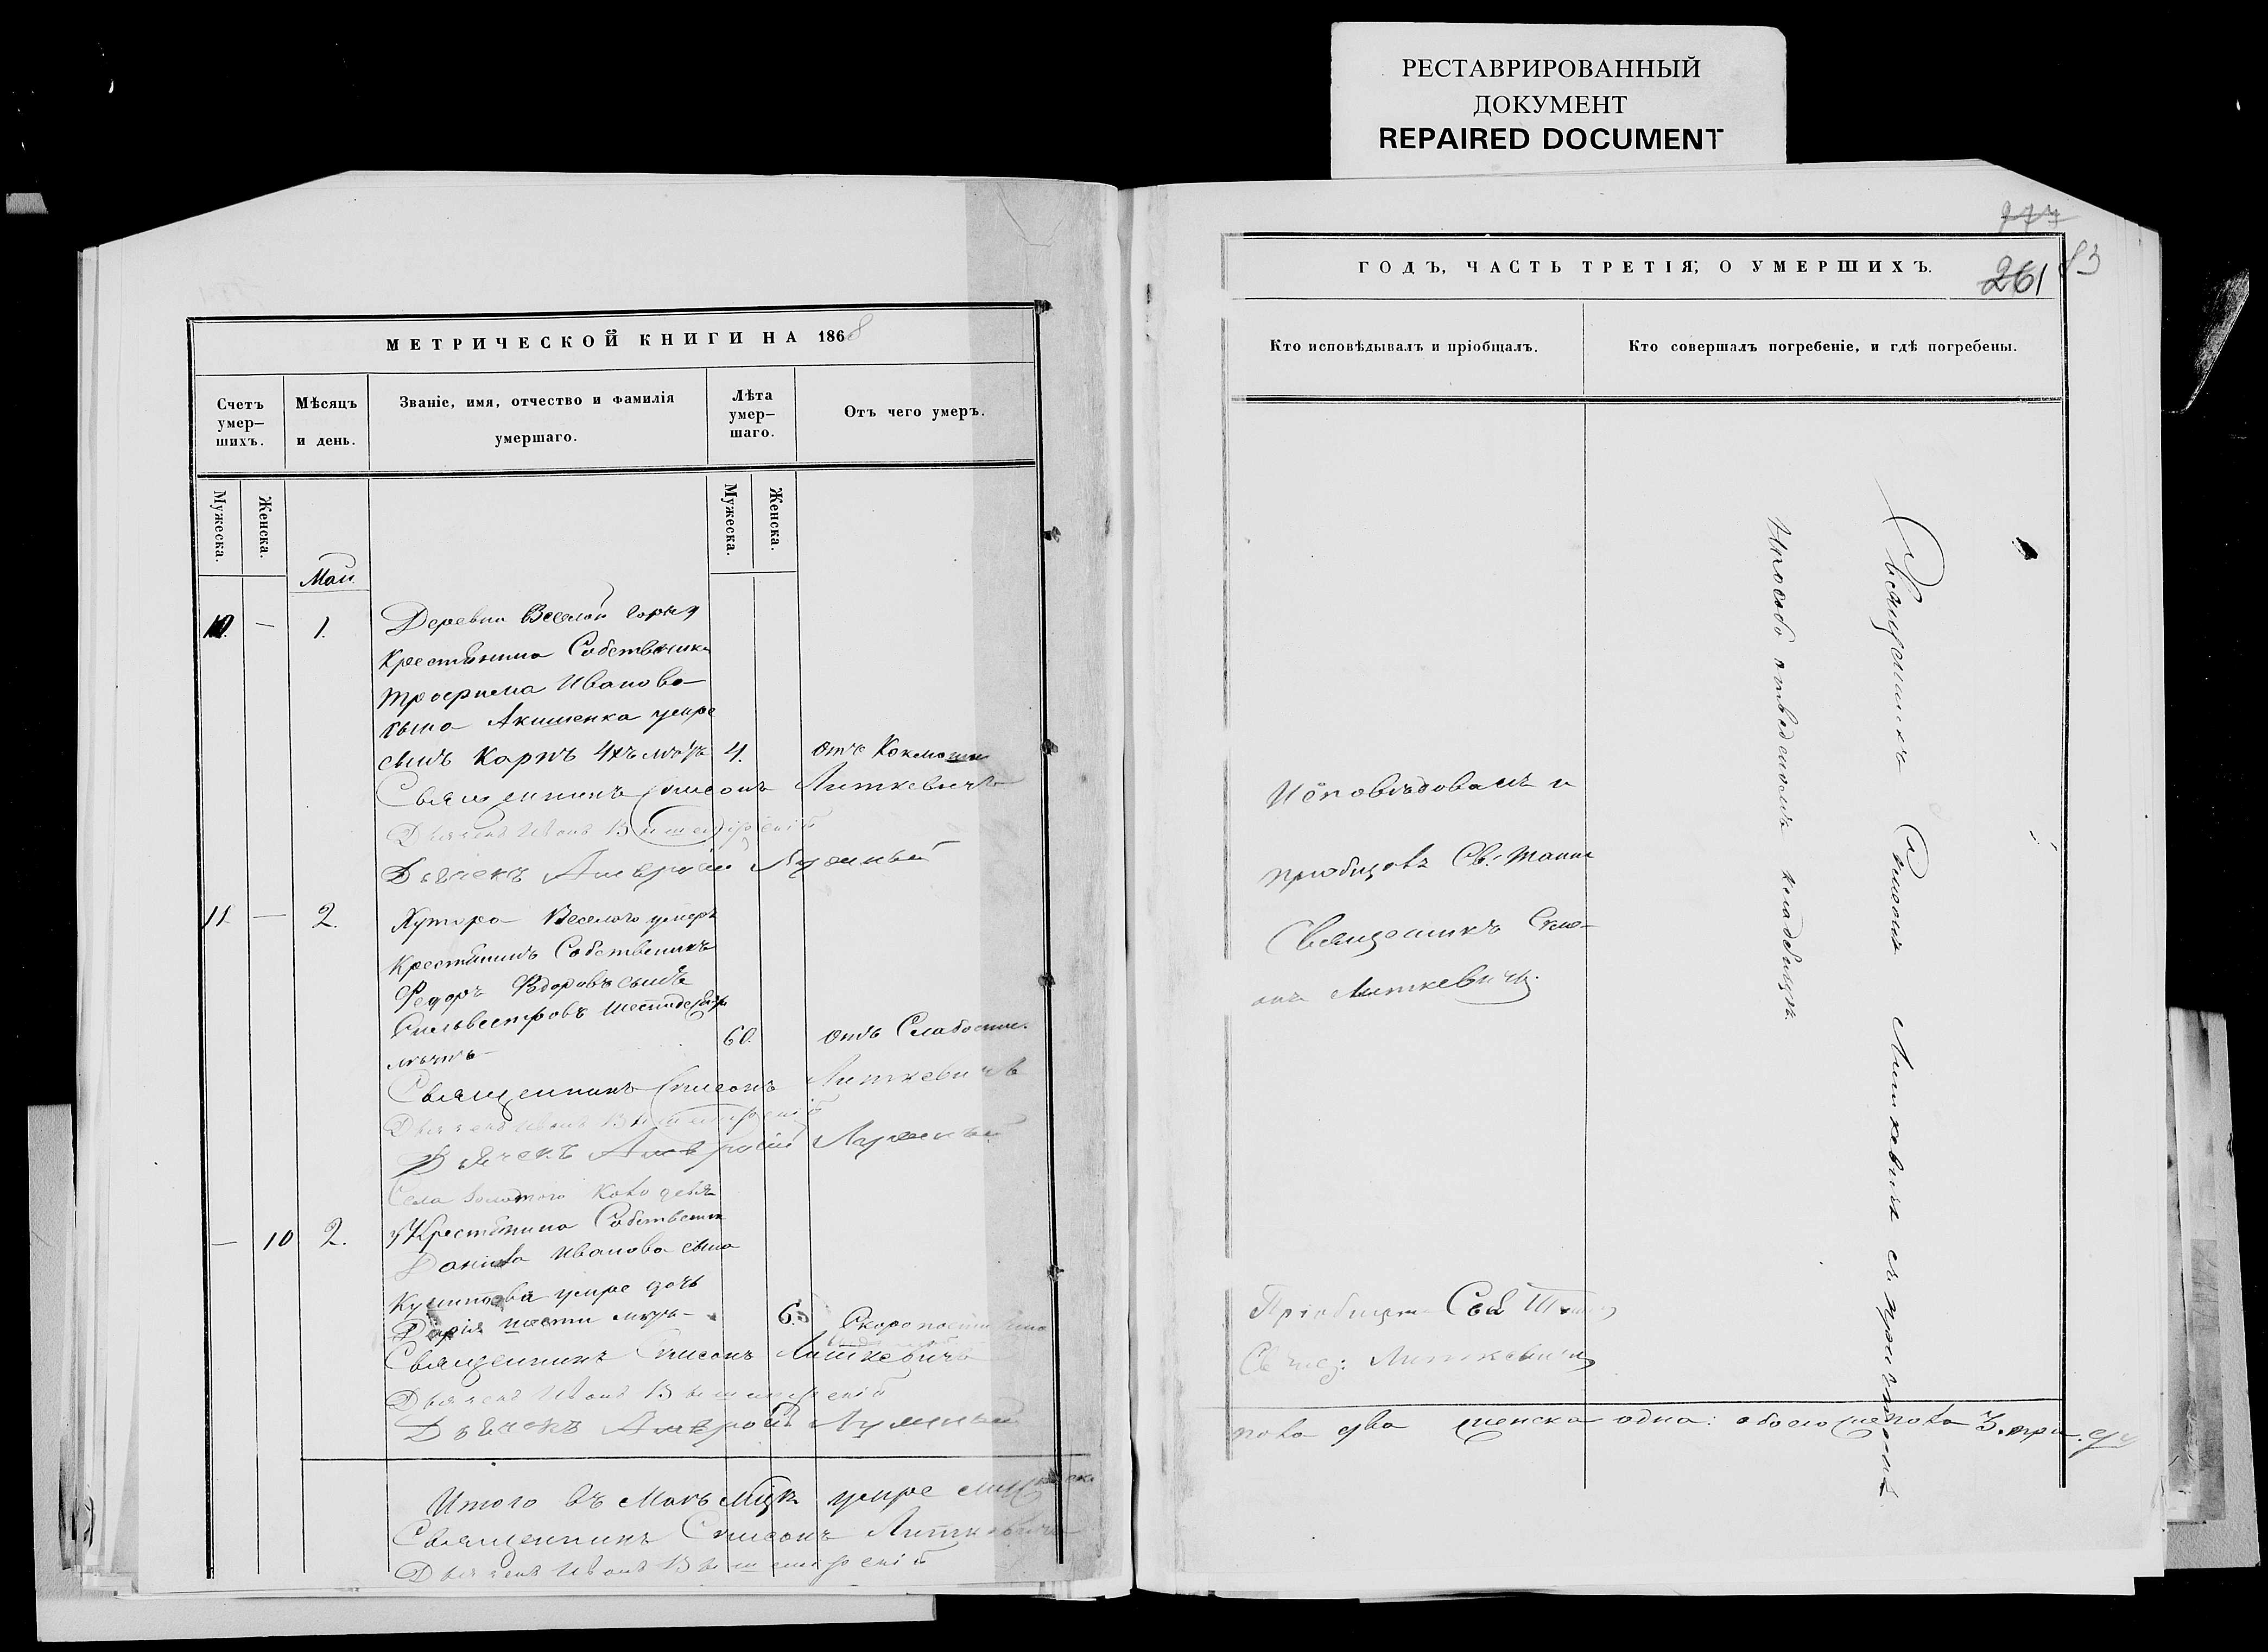 РЕСТАВРИРОВАННЫЙ
ДОКУМЕНТ
REPAIRED DOCUMENT
МЕТРИЧЕСКОЙ КНИГИ НА 1868
Счетъ умер–шихъ.
Мѣсяцъ и день.
Званіе, имя, отчество и фамилія умершаго.
Лѣта умер–шаго.
Отъ чего умеръ.
Мужеска.
Женска.
Мужеска.
Женска.
Маи
10. — 1. Деревни Веселой Горы у
Крестьянина Собственника
Трофима Иванова
сына Акименка умре
сынъ Карпъ 4хъ лѣтъ 4. отъ
Священникъ Симеонъ Литкевичъ
Дьячекъ Амвросій
11. — 2. Хутора Веселого умеръ
Крестьянинъ Собственникъ
Федоръ Федоровъ сынъ
Сильвестровъ шестидесяти
лѣтъ 60. отъ Слабости.
Священникъ Симеонъ Литкевичъ
Дьячекъ Амвросій
Села Золотого Колодезя
— 10 2. у Крестьянина Собственника
Данила Иванова сына
умре дочь
Дарія шести лѣтъ 6. Скоропостижно
Священникъ Симеонъ Литкевичъ
Дьячекъ Амвросій
Итого въ Маѣ мцѣ умре
Священникъ Симеонъ Литкевичъ
261
83
ГОДЪ, ЧАСТЬ ТРЕТІЯ, О УМЕРШИХЪ.
Кто исповѣдывалъ и пріобщалъ.
Кто совершалъ погребеніе, и гдѣ погребены.
Исповѣдовалъ и
пріобщовъ Св. Таинъ
Священникъ Симе-
онъ Литкевичъ.
Священникъ Симеонъ Литкевичъ съ причтомъ
на особо отведенномъ кладбищѣ.
Пріобщалъ Свя Таинъ
Свящ: Литкевичъ
пола два женска одна: обоего пола 3. три.